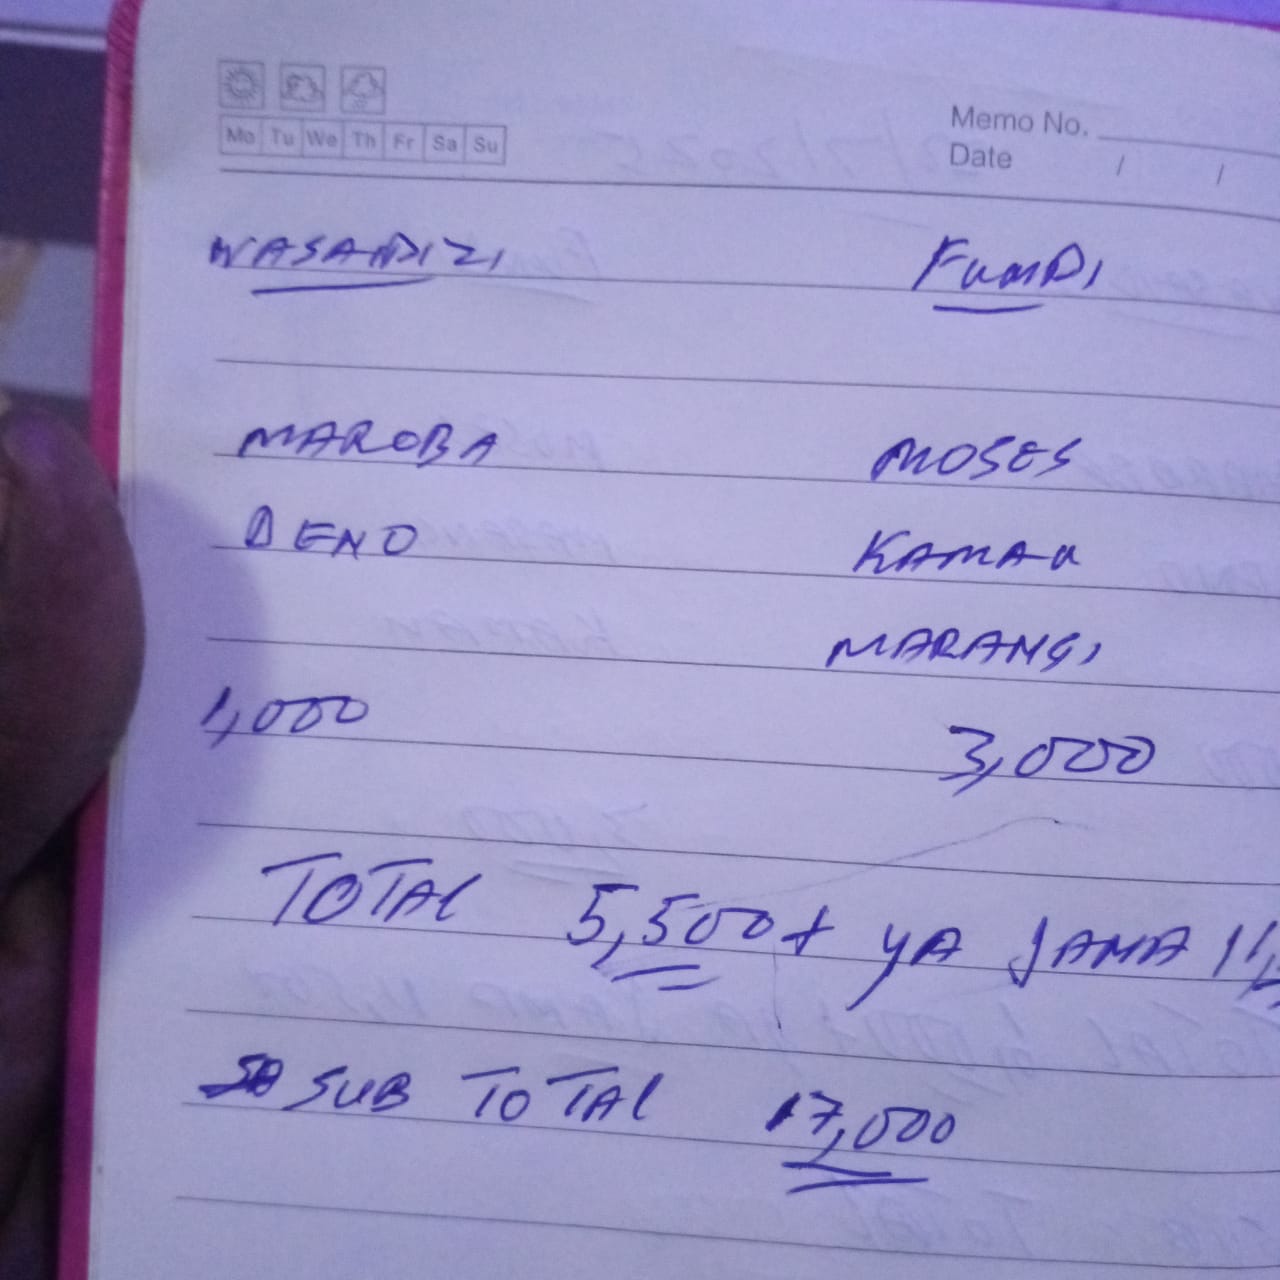 Mo Tu We Th Fr Sa Su
Memo No.
Date / /
WASANDIZI FUNDI
MAROBA MOSES
DENO KAMAU
MARANGI
1,000 3,000
TOTAL 5,500 + YA JANA
SUB TOTAL 17,000